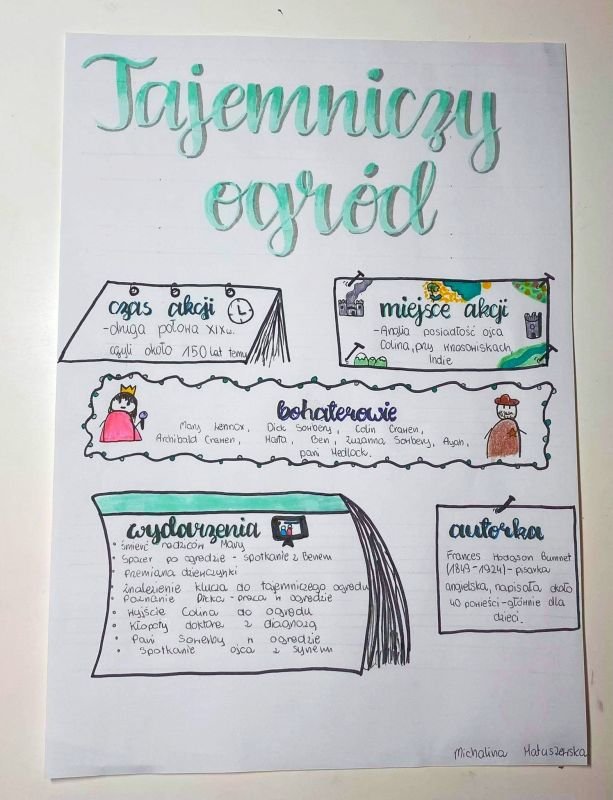 Tajemniczy
ogród
czas akcji
-druga połowa XIXw.
czyli około 150 lat temu
miejsce akcji
-Anglia posiadłość ojca
Colina, przy wrzosowiskach,
Indie
bohaterowie
Mary Lennox, Dick Sowbery, Colin Craven,
Archibald Craven, Marta, Ben, Zuzanna Sowbery, Ayah,
pani Medlock.
wydarzenia
• Śmierć rodziców Mary
• Spacer po ogrodzie - spotkanie z Benem
• Przemiana dziewczynki
• Znalezienie klucza do tajemniczego ogrodu
• Poznanie Dicka - praca w ogrodzie
• Wyjście Colina do ogrodu
• Kłopoty doktora z diagnozą
• Pani Sowerby w ogrodzie
• Spotkanie ojca z synem
autorka
Frances Hodgson Burnnet
(1849-1924) - pisarka
angielska, napisała około
40 powieści - głównie dla
dzieci.
Michalina Matuszewska